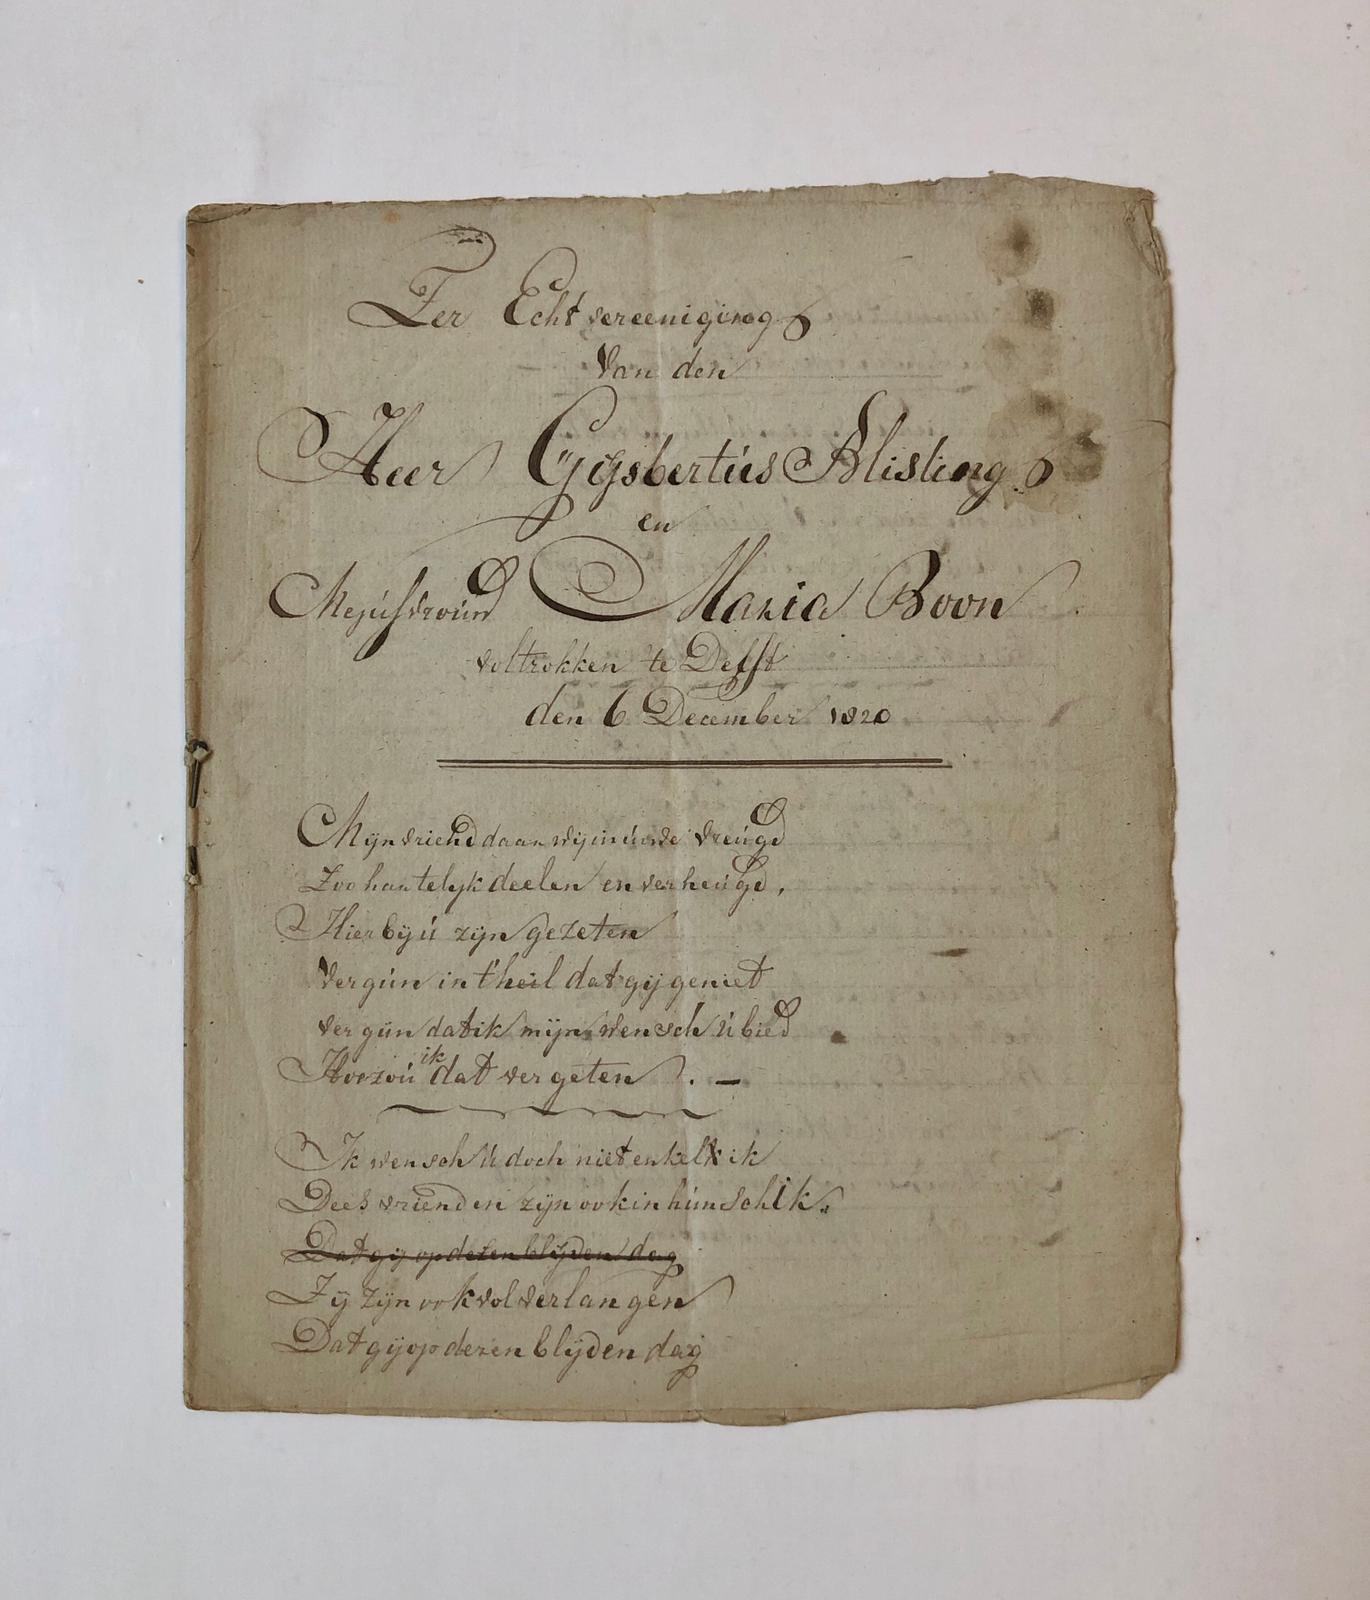 Ter Echtvereeniging
van den
Heer Gijsbertus Alisting
en
Mejufvrouw Maria Boon
voltrokken te Delft
den 6 December 1820
Mijn vriend daar wij in uwe vreugd
Zoo hartelyk deelen en verheugd,
Hier bij u zijn gezeten
vergun in t'heil dat gij geniet
vergun dat ik mijn wensch u bied
Hoe zou ik dat vergeten . —
Ik wensch u doch niet enkelk ik
Dees vrienden zijn ook in hun schik.
Dat gij op dezen blijden dag
Zy zijn ook vol verlangen
Dat gij op dezen blijden dag